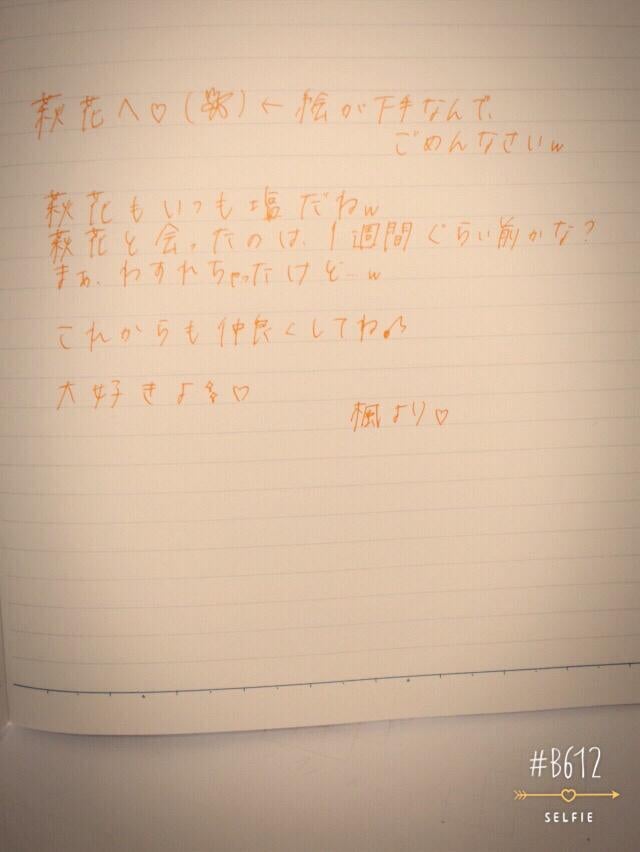 萩花へ♡(🌸)←絵が下手なんで、
ごめんなさいw
萩花もいつも塩だねw
萩花と会ったのは、1週間ぐらい前かな?
まぁ、わすれちゃったけど…w
これからも仲良くしてね♪
大好きよ♡
楓より♡
#B612
SELFIE